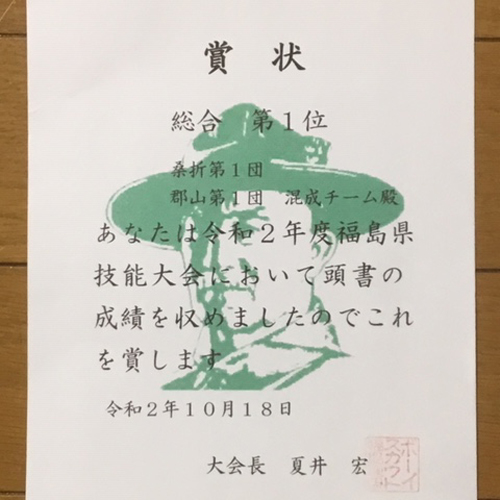 賞状
総合 第１位
桑折第１団
郡山第１団 混成チーム殿
あなたは令和２年度福島県
技能大会において頭書の
成績を収めましたのでこれ
を賞します
令和２年１０月１８日
大会長 夏井 宏
ボーイ
スカウト